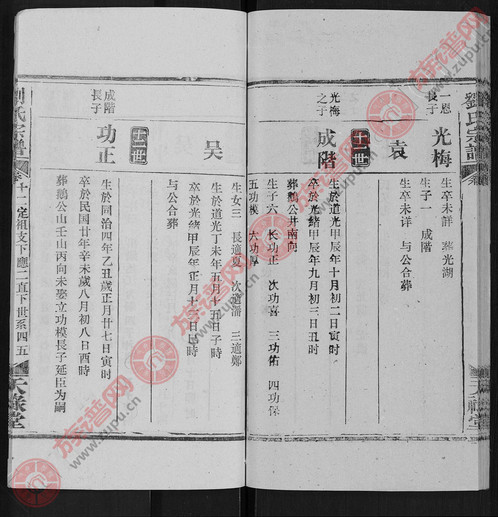 劉氏宗譜
天祿堂
一恩長子
光梅
生卒未詳 葬光湖
生子一 成階
袁
生卒未詳 与公合葬
十二世
光梅之子
成階
生於道光甲辰年十月初二日寅时
卒於光緒甲辰年九月初三日丑时
葬鵝公井南向
生子六 長功正 次功喜 三功佑 四功保
五功模 六功厚
吴
生於道光丁未年五月十五日子时
卒於光緒甲辰年正月十日時
与公合葬
生女三 長適夏 次適潘 三適鄭
十三世
成階長子
功正
生於同治四年乙丑歲正月廿七日寅时
卒於民国廿年辛未歲八月初八日酉時
葬鵝公山壬山丙向未娶立功模長子延臣为嗣
劉氏宗譜
卷十一定祖支下應二直下世系四五
天祿堂
族谱网
www.zupu.cn
族谱网
www.zupu.cn